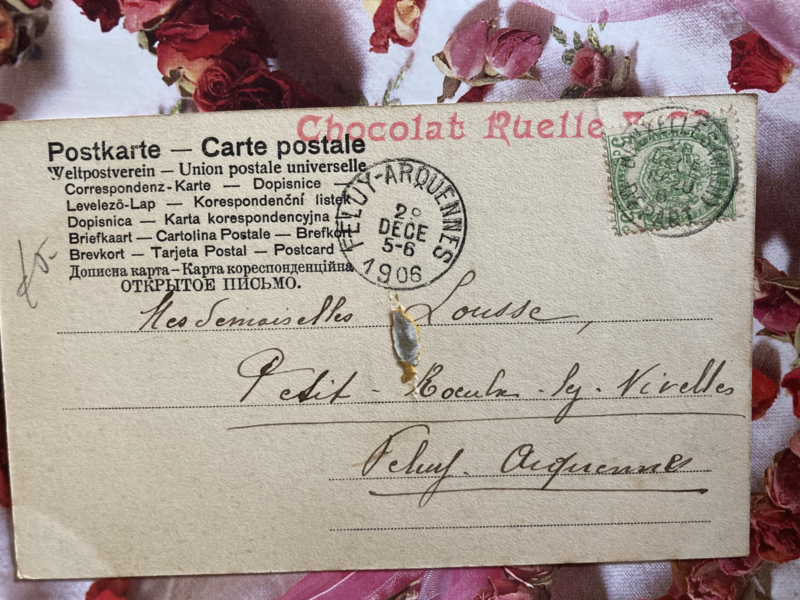 Chocolat Ruelle
Postkarte — Carte postale
Weltpostverein — Union postale universelle
Correspondenz-Karte — Dopisnice —
Levelező-Lap — Korespondenční listek
Dopisnica — Karta korespondencyjna
Briefkaart — Cartolina Postale — Brefkort
Brevkort — Tarjeta Postal — Postcard
Дописна карта — Карта кореспонденційна
ОТКРЫТОЕ ПИСЬМО.
FELUY-ARQUENNES
2
DECE
5-6
1906
DEPART
Mesdemoiselles Lousse,
Petit - Roeulx - lez - Nivelles
Feluy - Arquennes